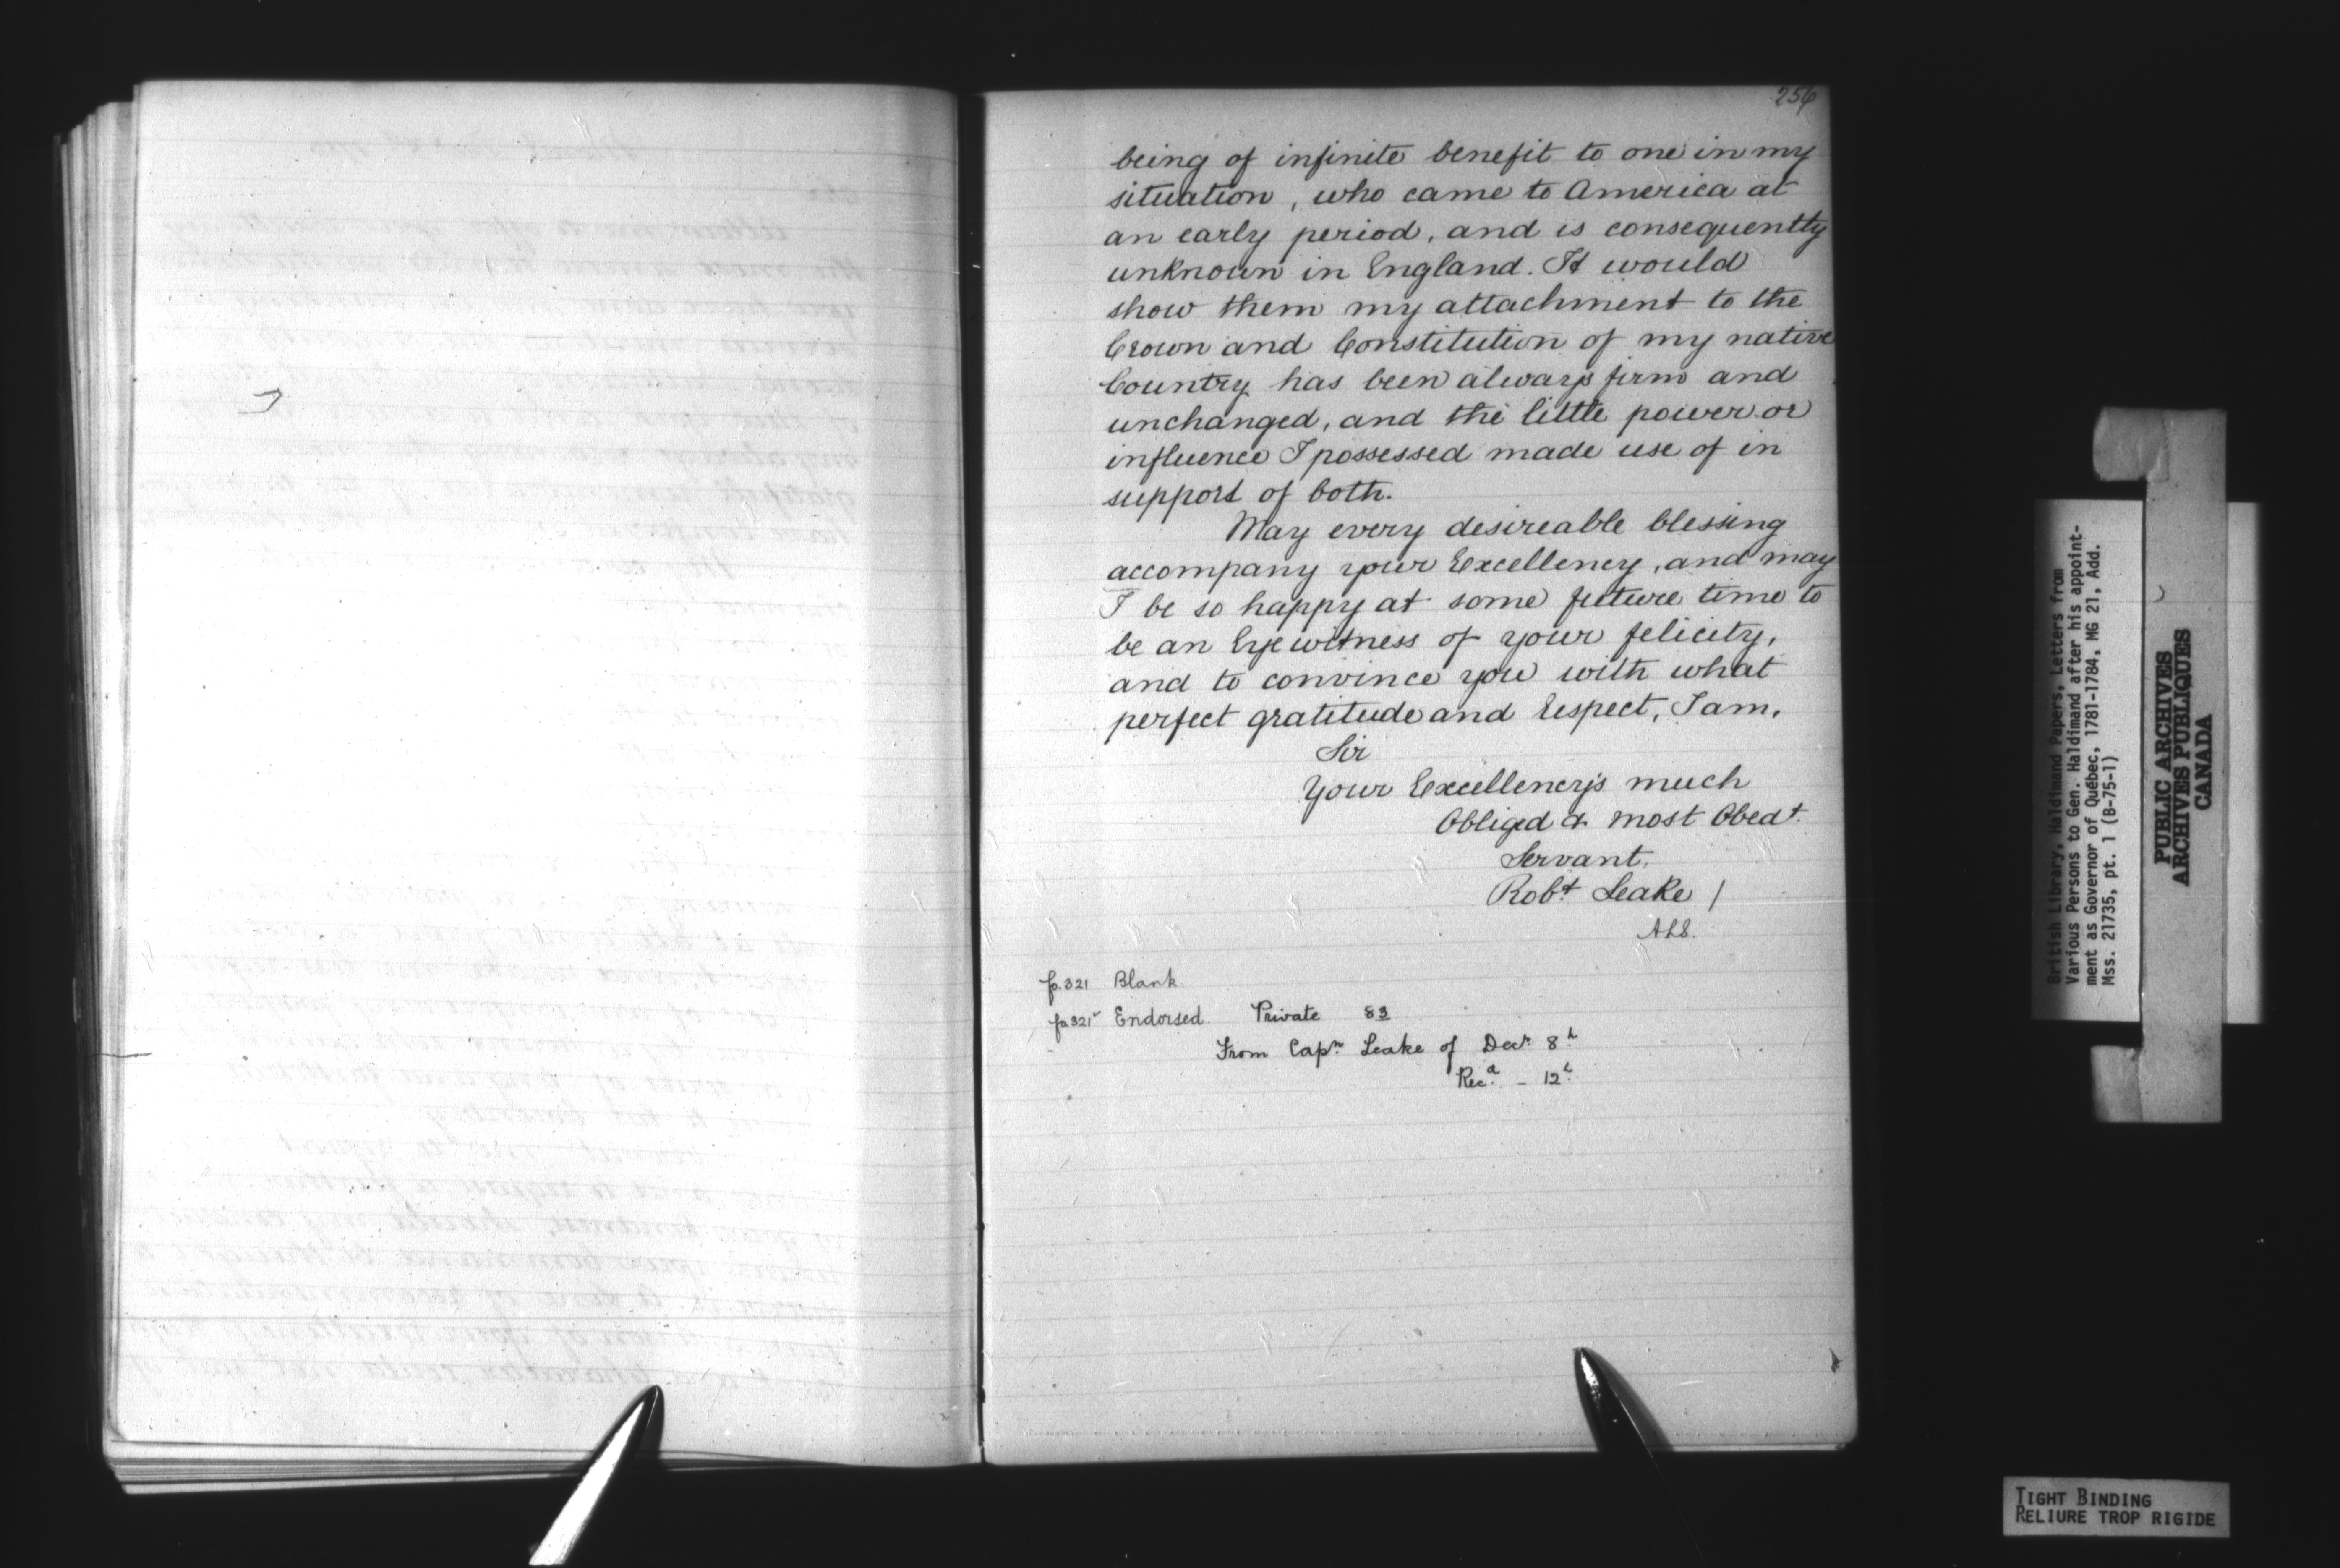 256
being of infinite benefit to one in my
situation, who came to America at
an early period, and is consequently
unknown in England. It would
show them my attachment to the
Crown and Constitution of my native
Country has been always firm and
unchanged, and the little power or
influence I possessed made use of in
support of both.
May every desireable blessing
accompany your Excellency, and may
I be so happy at some future time to
be an Eye witness of your felicity,
and to convince you with what
perfect gratitude and respect, I am,
Sir
Your Excellency's much
Obliged & most Obedt.
Servant,
Robt Leake /
ALS.
fo.321 Blank
fo.321v Endorsed. Private 83
From Capn. Leake of Decr. 8h
Recd. - 12h
British Library, Haldimand Papers, Letters from
Various Persons to Gen. Haldimand after his appoint-
ment as Governor of Québec, 1781-1784, MG 21, Add.
Mss. 21735, pt. 1 (B-75-1)
PUBLIC ARCHIVES
ARCHIVES PUBLIQUES
CANADA
TIGHT BINDING
RELIURE TROP RIGIDE